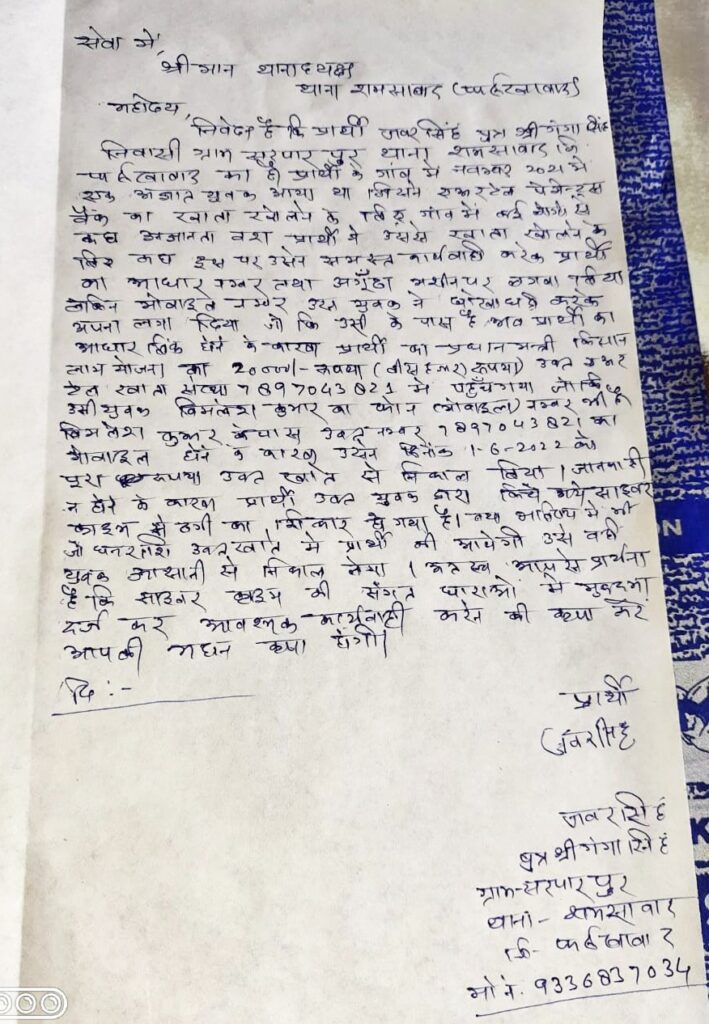 सेवा में,
श्रीमान थानाध्यक्ष
थाना शमसाबाद (फर्रुखाबाद)
महोदय,
निवेदन है कि प्रार्थी जबर सिंह पुत्र श्री गंगा सिंह
निवासी ग्राम पुर थाना शमसाबाद जि०
फर्रुखाबाद का है प्रार्थी के गांव में नवम्बर 2021 में
एक अज्ञात युवक आया था जिसने एअरटेल पेमेन्ट्स
बैंक का खाता खोलने के लिए गांव में कई लोगों से
कहा अज्ञानता वश प्रार्थी ने उससे खाता खोलने के
लिए कहा इस पर उसने समस्त कार्यवाही करके प्रार्थी
का आधार नम्बर तथा अगूँठा मशीन पर लगवा लिया
लेकिन मोबाइल नम्बर उक्त युवक ने धोखाधड़ी करके
अपना लगा दिया जो कि उसी के पास है अब प्रार्थी का
आधार लिंक होने के कारण प्रार्थी का प्रधानमन्त्री किसान
लाभ योजना का 20000/- रूपया (बीस हजार रूपया) उक्त एअर
टेल खाता संख्या 7897043821 में पहुँच गया जो कि
उसी युवक विमलेश कुमार का फोन (मोबाइल) नम्बर भी है
विमलेश कुमार के पास उक्त नम्बर 7897043821 का
मोबाइल होने के कारण उसने दिनांक 1-6-2022 को
पूरा रूपया उक्त खाते से निकाल लिया। जानकारी
न होने के कारण प्रार्थी उक्त युवक द्वारा किये गये साइबर
क्राइम से ठगी का शिकार हो गया है। तथा भविष्य में भी
जो धनराशि उक्त खाते में प्रार्थी की आयेगी उसे वही
युवक आसानी से निकाल लेगा। अतः आपसे प्रार्थना
है कि साइबर क्राइम की संगत धाराओं में मुकदमा
दर्ज कर आवश्यक कार्यवाही करने की कृपा करें
आपकी महान कृपा होगी।
दि :-
प्रार्थी
जबरसिंह
जबर सिंह
पुत्र श्री गंगा सिंह
ग्राम- पुर
थाना- शमसाबाद
जि- फर्रुखाबाद
मो नं. 9336837034